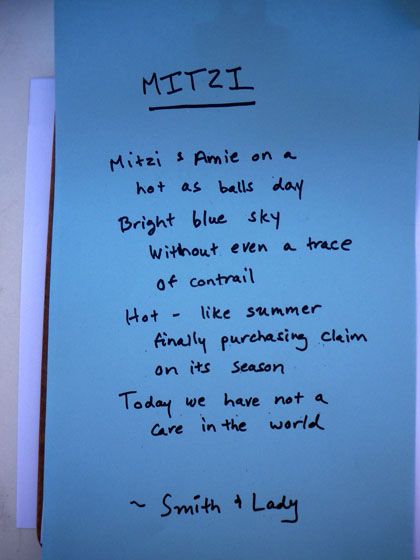 MITZI
Mitzi & Amie on a
hot as balls day
Bright blue sky
without even a trace
of contrail
Hot - like summer
finally purchasing claim
on its season
Today we have not a
care in the world
~ Smith & Lady